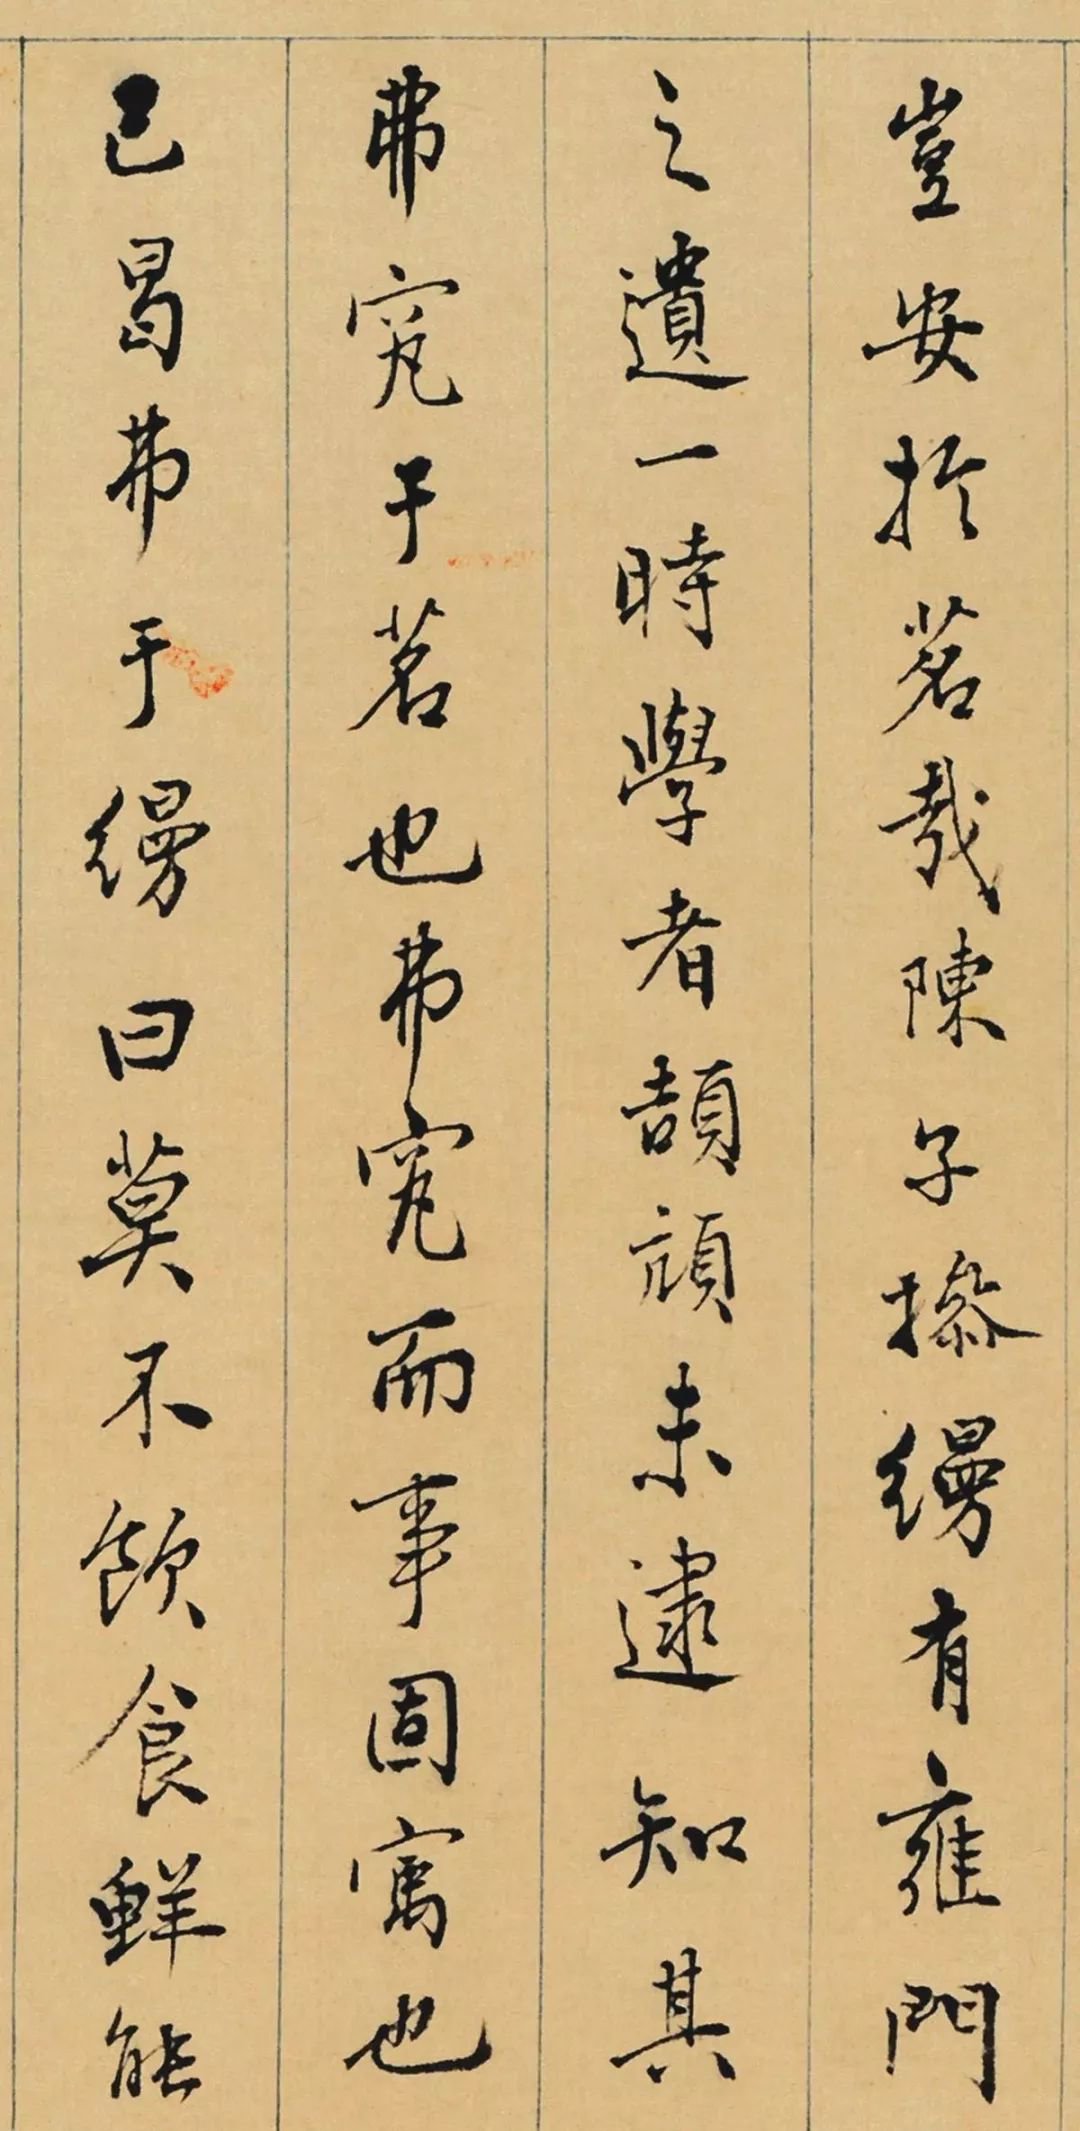 豈安於茗哉陳子操縵有雍門
之遺一時學者頡頏未逮知其
弗究于茗也弗究而事固寓也
已曷弗于縵曰莫不飲食鮮能